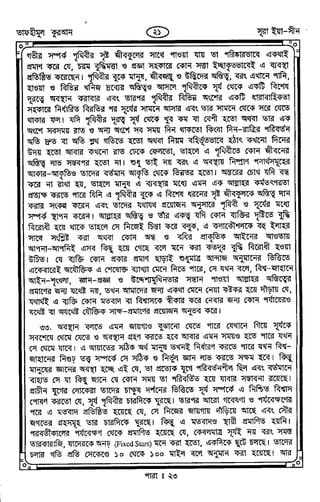 তাফহীমুল কুরআন
২১
সূরা ইয়া–সীন
গভীর সম্পর্ক পৃথিবীর সৃষ্ট জীবকুলের সাথে পাওয়া যায় তা পরিষ্কারভাবে একথাই
প্রমাণ করে যে, চরম বুদ্ধিমত্তা ও প্রজ্ঞা সহকারে কোন সত্তা ইচ্ছাকৃতভাবেই এ ব্যবস্থা
প্রতিষ্ঠিত করেছেন। পৃথিবীর বুকে মানুষ, জীবজন্তু ও উদ্ভিদের অস্তিত্ব, বরং এখানে পানি,
হাওয়া ও বিভিন্ন খনিজ দ্রব্যের অস্তিত্বও আসলে পৃথিবীকে সূর্য থেকে একটি বিশেষ
দূরত্বে অবস্থান করাবার এবং তারপর পৃথিবীর বিভিন্ন অংশের একটি ধারাবাহিকতা
সহকারে নির্ধারিত বিরতির পর সূর্যের সামনে আসার এবং তার সামনে থেকে সরে যেতে
থাকার ফল। যদি পৃথিবীর দূরত্ব সূর্য থেকে খুব কম বা বেশী হতো অথবা তার এক
অংশে সবসময় রাত ও অন্য অংশে সব সময় দিন থাকতো কিংবা দিন–রাত্রির পরিবর্তন
অতি দ্রুত বা অতি শ্লথ গতিতে হতো অথবা নিয়ম বহির্ভূতভাবে হঠাৎ কখনো দিনের
উদয় হতো আবার কখনো রাত ঢেকে ফেলতো, তাহলে এ পৃথিবীতে কোন জীবনের
অস্তিত্ব লাভ সম্ভবপর হতো না। শুধু তাই নয় বরং এ অবস্থায় নিষ্প্রাণ পদার্থসমূহের
আকার–আকৃতিও তাদের বর্তমান আকৃতি থেকে ভিন্নতর হতো। অন্তরের চোখ যদি বন্ধ
করে না রাখা হয়, তাহলে মানুষ এ ব্যবস্থার মধ্যে এমন এক আল্লাহর কর্মতৎপরতা
প্রত্যক্ষ করতে পারে যিনি এ পৃথিবীর বুকে এ বিশেষ ধরনের সৃষ্ট জীবকুলকে অস্তিত্ব দান
করার সংকল্প করেন এবং তাদের যথাযথ প্রয়োজন অনুসারে পৃথিবী ও সূর্যের মধ্যে
সম্পর্ক স্থাপন করেন। আল্লাহর অস্তিত্ব ও তাঁর একত্ব যদি কোন ব্যক্তির দৃষ্টিতে বুদ্ধি
বিরোধী হয়ে থাকে তাহলে সে নিজেই চিন্তা করে বলুক, এ কলাকৌশলকে বহু ইলাহর
সাথে সংশ্লিষ্ট করা অথবা কোন অন্ধ ও বধির প্রাকৃতিক আইনের আওতায়
আপনা–আপনিই এসব কিছু হয়ে গেছে বলে মনে করা কতদূর বুদ্ধি বিরোধী হওয়া
উচিত। যে ব্যক্তি কোন প্রকার প্রমাণ ছাড়াই শুধুমাত্র আন্দাজ অনুমানের ভিত্তিতে
একেবারেই অযৌক্তিক এ শেষোক্ত ব্যাখ্যা মেনে নিতে পারে, সে যখন বলে, বিশ্ব–জাহানে
আইন–শৃংখলা, জ্ঞান–প্রজ্ঞা ও উদ্দেশ্যমুখিনতার সন্ধান পাওয়া আল্লাহর অস্তিত্বের
প্রমাণের জন্য যথেষ্ট নয়, তখন আমাদের জন্য একথা মেনে নেয়া কষ্টকর হয়ে দাঁড়ায় যে,
যথার্থই এ ব্যক্তি কোন মতবাদ বা বিশ্বাসকে স্বীকার করে নেবার জন্য কোন পর্যায়েরও
যথেষ্ট বা অযথেষ্ট যৌক্তিক সাক্ষ্য–প্রমাণের প্রয়োজন অনুভব করে।
৩৩. অবস্থান বলতে এমন জায়গাও বুঝানো যেতে পারে যেখানে গিয়ে সূর্যকে
সবশেষে থেমে যেতে ও অবস্থান গ্রহণ করতে হবে আবার এমন সময়ও হতে পারে যখন
সে থেমে যাবে। এ আয়াতের সঠিক অর্থ মানুষ তখনই নির্ধারণ করতে পারে যখন বিশ্ব–
জাহানের নিগূঢ় তত্ত্ব সম্পর্কে সে সঠিক ও নির্ভুল জ্ঞান লাভ করতে সক্ষম হবে। কিন্তু
মানুষের জ্ঞানের অবস্থা হচ্ছে এই যে, তা প্রত্যেক যুগে পরিবর্তনশীল ছিল এবং বর্তমানে
বাহ্যত সে যা কিছু জানে যে কোন সময় তা পরিবর্তিত হয়ে যাবার সম্ভাবনা রয়েছে।
প্রাচীন যুগের লোকেরা তাদের চাক্ষুষ দর্শনের ভিত্তিতে সূর্য সম্পর্কে এ নিশ্চিত বিশ্বাস
পোষণ করতো যে, সূর্য পৃথিবীর চারদিকে ঘুরছে। তারপর আরো গবেষণা ও পর্যবেক্ষণের
পরে এ মতবাদ প্রতিষ্ঠিত হয়েছে যে, সে নিজের জায়গায় দাঁড়িয়ে আছে এবং সৌর
জগতের গ্রহসমূহ তার চারদিকে ঘুরছে। কিন্তু এ মতবাদও স্থায়ী প্রমাণিত হয়নি।
পরবর্তীকালের পর্যবেক্ষণ থেকে প্রমাণিত হয়েছে যে, কেবলমাত্র সূর্যই নয় বরং সমস্ত
তারকারাজি, যাদেরকে অনড় (Fixed Stars) মনে করা হতো, একদিকে ছুটে চলছে। তাদের
চলার গতি প্রতি সেকেণ্ডে ১০ থেকে ১০০ মাইল বলে অনুমান করা হয়েছে। আর
পারা : ২৩